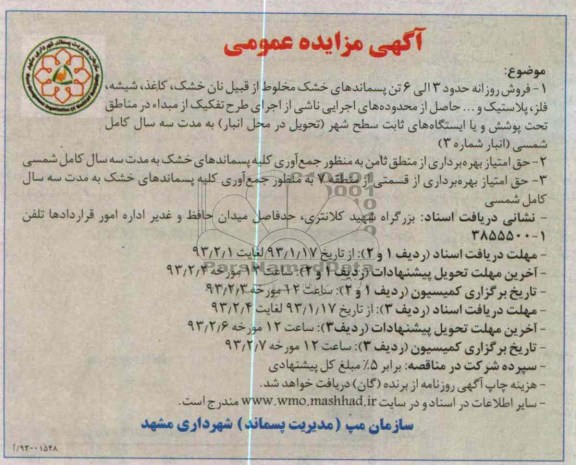 آگهی مزایده عمومی
موضوع:
۱- فروش روزانه حدود ۳ الی ۶ تن پسماندهای خشک مخلوط از قبیل نان خشک، کاغذ، شیشه،
فلز، پلاستیک و ... حاصل از محدوده‌های اجرایی ناشی از اجرای طرح تفکیک از مبداء در مناطق
تحت پوشش و یا ایستگاه‌های ثابت سطح شهر (تحویل در محل انبار) به مدت سه سال کامل
شمسی (انبار شماره ۳)
۲- حق امتیاز بهره‌برداری از منطق ثامن به منظور جمع‌آوری کلیه پسماندهای خشک به مدت سه سال کامل شمسی
۳- حق امتیاز بهره‌برداری از قسمتی از منطقه ۷ به منظور جمع‌آوری کلیه پسماندهای خشک به مدت سه سال
کامل شمسی
- نشانی دریافت اسناد: بزرگراه شهید کلانتری، حدفاصل میدان حافظ و غدیر اداره امور قراردادها تلفن
۳۸۵۵۵۰۰-۱
- مهلت دریافت اسناد (ردیف ۱ و ۲): از تاریخ ۹۳/۱/۱۷ لغایت ۹۳/۲/۱
- آخرین مهلت تحویل پیشنهادات (ردیف ۱ و ۲): ساعت ۱۴ مورخه ۹۳/۲/۲
- تاریخ برگزاری کمیسیون (ردیف ۱ و ۲): ساعت ۱۲ مورخه ۹۳/۲/۳
- مهلت دریافت اسناد (ردیف ۳): از تاریخ ۹۳/۱/۱۷ لغایت ۹۳/۲/۴
- آخرین مهلت تحویل پیشنهادات (ردیف ۳): ساعت ۱۲ مورخه ۹۳/۲/۶
- تاریخ برگزاری کمیسیون (ردیف ۳): ساعت ۱۲ مورخه ۹۳/۲/۷
- سپرده شرکت در مناقصه: برابر ۵٪ مبلغ کل پیشنهادی
- هزینه چاپ آگهی روزنامه از برنده (گان) دریافت خواهد شد.
- سایر اطلاعات در اسناد و در سایت www.wmo.mashhad.ir مندرج است.
سازمان مپ (مدیریت پسماند) شهرداری مشهد
ParsNamadData